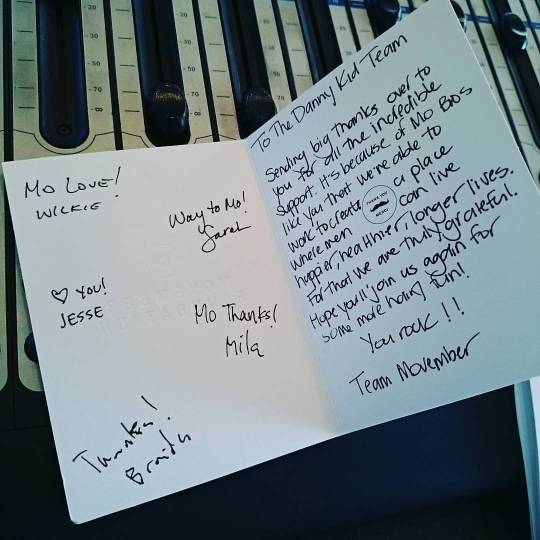 Mo Love!
Wilkie
Way to Mo!
Sarah
♡ you!
Jesse
Mo Thanks!
Mila
To The Danny Kid Team
Sending big thanks over to
you for all the incredible
support. It's because of Mo Bros
like you that we're able to
work to create a place
where men can live
happier, healthier, longer lives.
For that we are truly grateful.
Hope you'll join us again for
some more hairy fun!
You rock!!
Team Movember
30
50
70